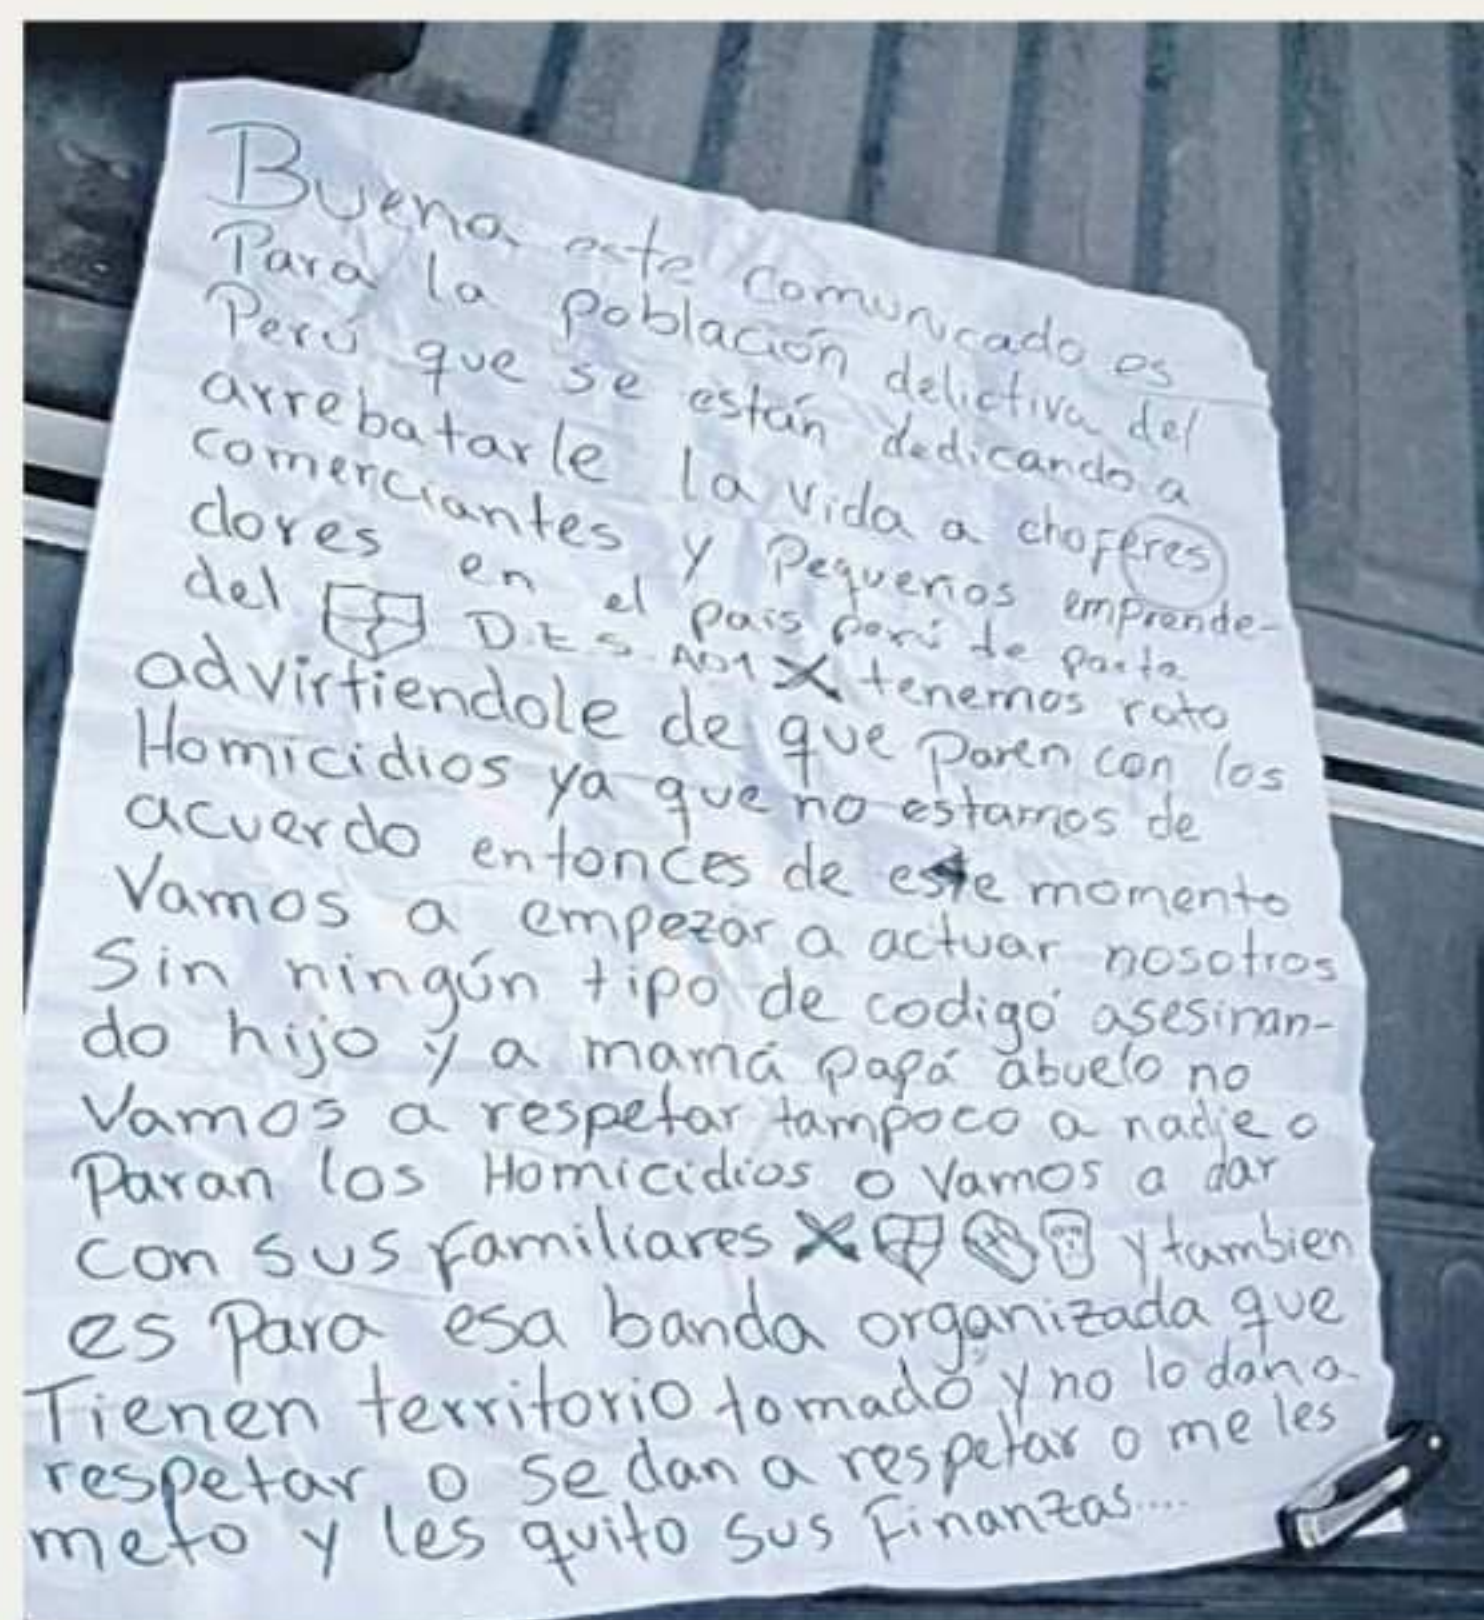 Buena este comunicado es
Para la población delictiva del
Perú que se están dedicando a
arrebatarle la vida a choferes
comerciantes y Pequeños emprende-
dores en el país perú de parte
del D.E.S. AD1 X tenemos rato
advirtiendole de que paren con los
Homicidios ya que no estamos de
acuerdo entonces de este momento
Vamos a empezar a actuar nosotros
Sin ningún tipo de codigó asesinan-
do hijo y a mamá papá abuelo no
Vamos a respetar tampoco a nadie o
Paran los Homicidios o Vamos a dar
con sus familiares X y tambien
es Para esa banda organizada que
Tienen territorio tomado y no lo dan a
respetar o se dan a respetar o me les
meto y les quito sus Finanzas....